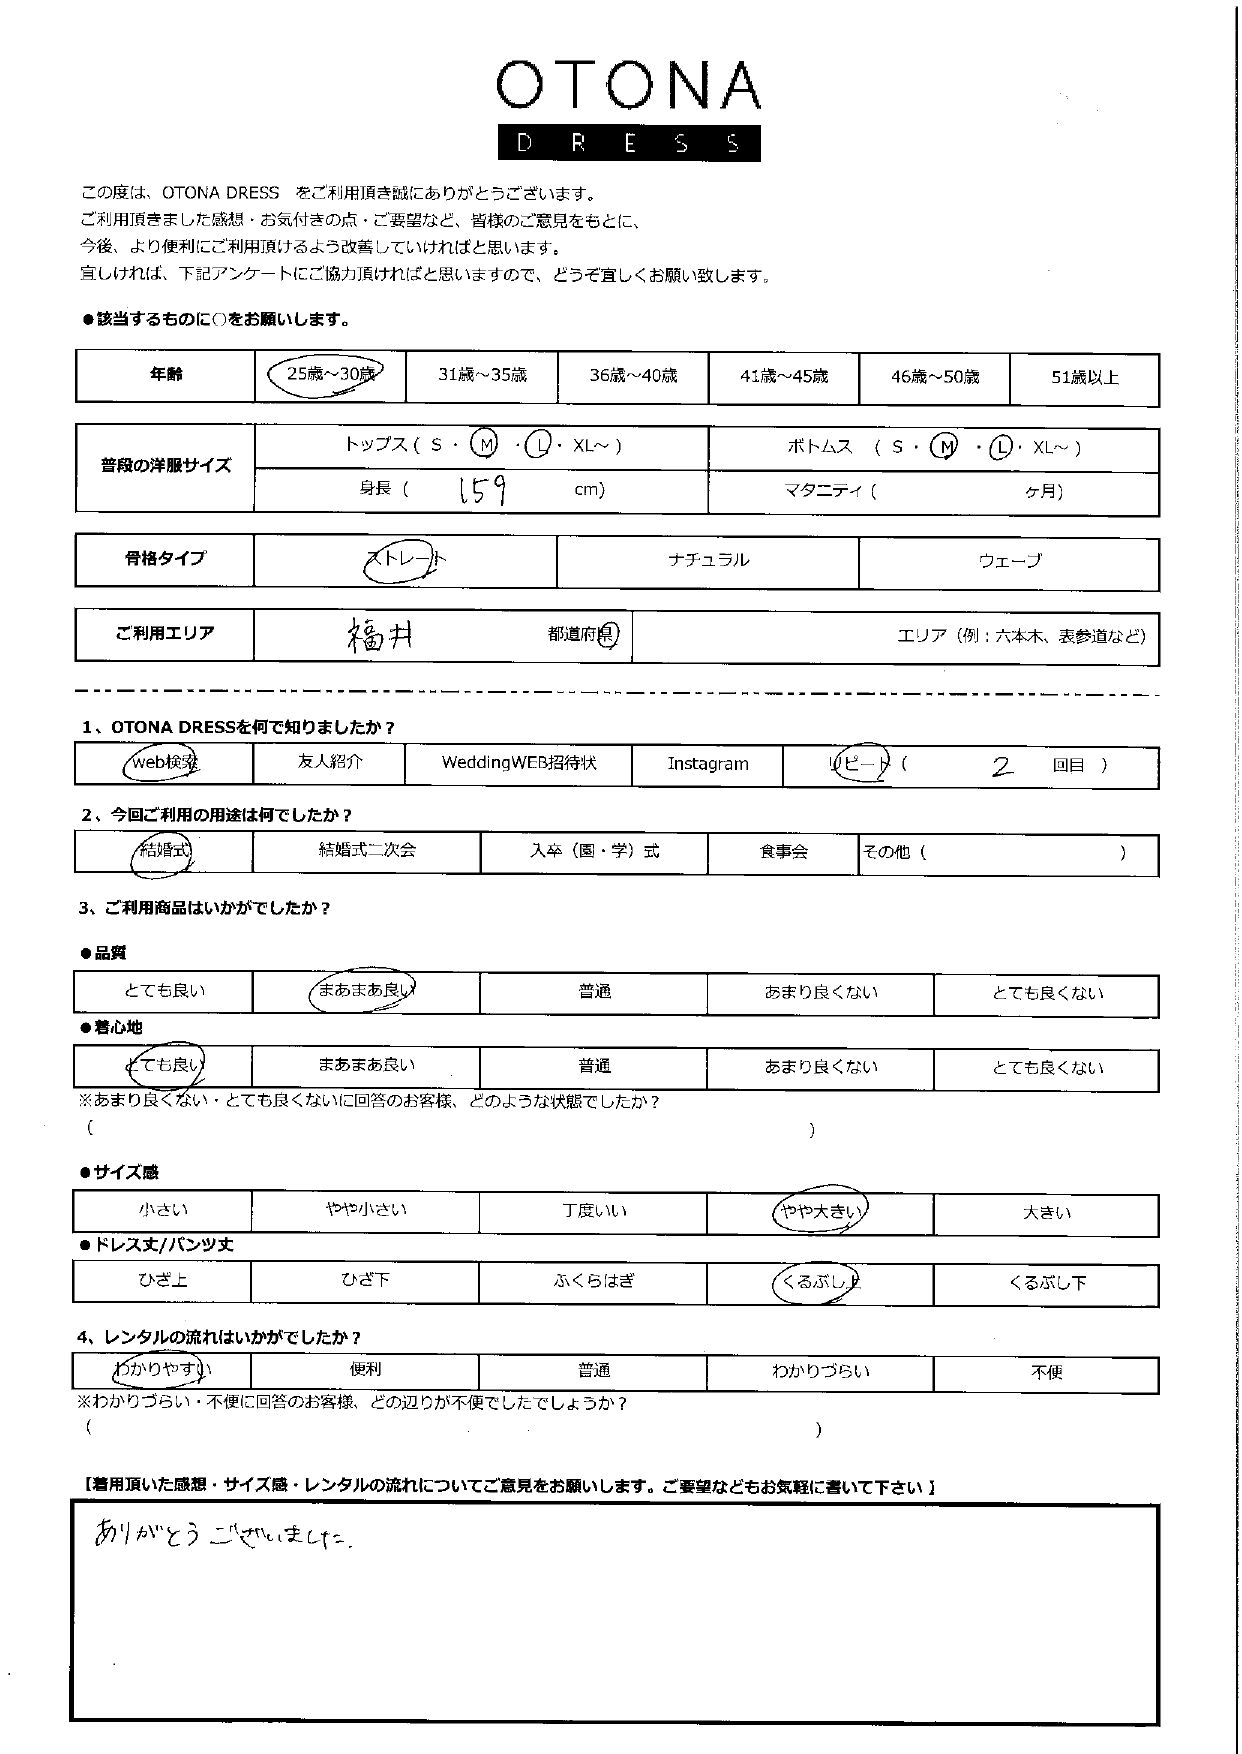 OTONA
DRESS
この度は、OTONA DRESS　をご利用頂き誠にありがとうございます。
ご利用頂きました感想・お気付きの点・ご要望など、皆様のご意見をもとに、
今後、より便利にご利用頂けるよう改善していければと思います。
宜しければ、下記アンケートにご協力頂ければと思いますので、どうぞ宜しくお願い致します。
●該当するものに○をお願いします。
年齢 25歳～30歳 31歳～35歳 36歳～40歳 41歳～45歳 46歳～50歳 51歳以上
普段の洋服サイズ
トップス ( S ・ M ・ L ・ XL～ ) ボトムス ( S ・ M ・ L ・ XL～ )
身長 ( 159 cm) マタニティ ( ヶ月)
骨格タイプ ストレート ナチュラル ウェーブ
ご利用エリア 福井 都道府県 エリア（例：六本木、表参道など）
1、OTONA DRESSを何で知りましたか？
web検索 友人紹介 WeddingWEB招待状 Instagram リピート ( 2 回目 )
2、今回ご利用の用途は何でしたか？
結婚式 結婚式二次会 入卒（園・学）式 食事会 その他 ( )
3、ご利用商品はいかがでしたか？
●品質
とても良い まあまあ良い 普通 あまり良くない とても良くない
●着心地
とても良い まあまあ良い 普通 あまり良くない とても良くない
※あまり良くない・とても良くないに回答のお客様、どのような状態でしたか？
( )
●サイズ感
小さい やや小さい 丁度いい やや大きい 大きい
●ドレス丈/パンツ丈
ひざ上 ひざ下 ふくらはぎ くるぶし上 くるぶし下
4、レンタルの流れはいかがでしたか？
わかりやすい 便利 普通 わかりづらい 不便
※わかりづらい・不便に回答のお客様、どの辺りが不便でしたでしょうか？
( )
【着用頂いた感想・サイズ感・レンタルの流れについてご意見をお願いします。ご要望などもお気軽に書いて下さい】
ありがとうございました.